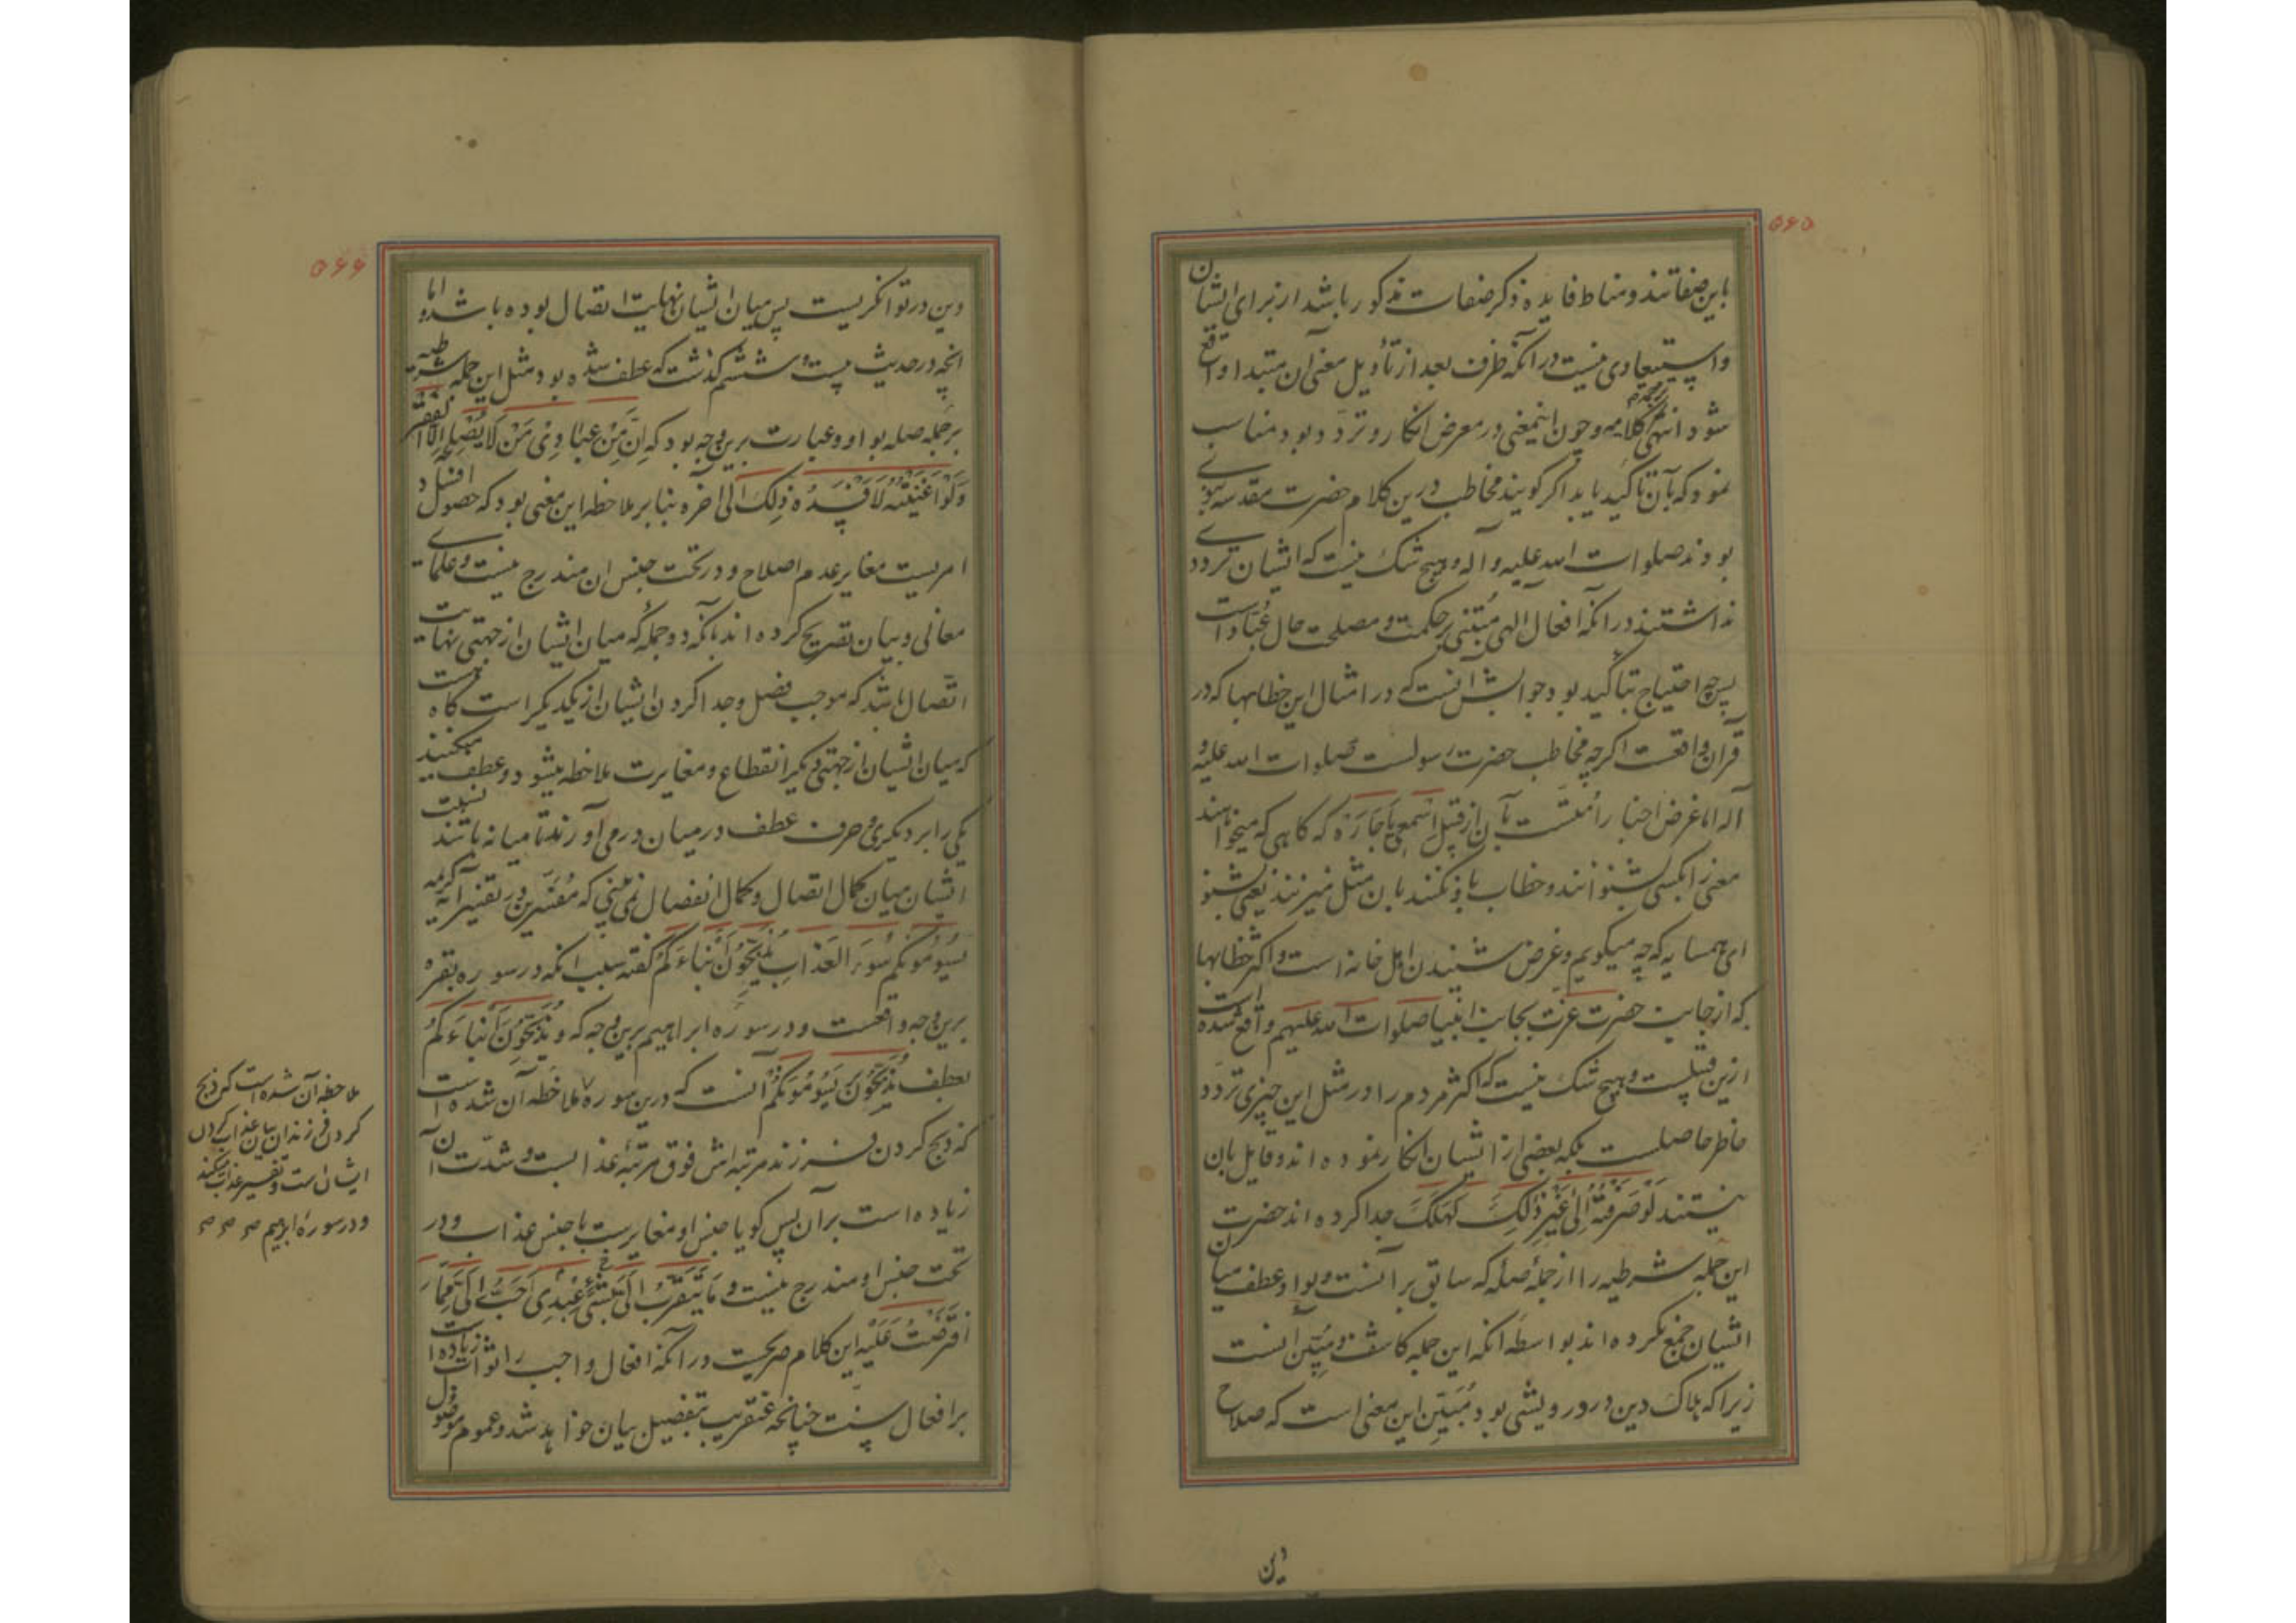 ۵۶۵
باین صفاتند و مناط فایده ذکر صفات مذکور باشد از برای ایشان
و استبعادی نیست در آنکه ظرف بعد از تأویل معنی آن مبتدا واقع
شود انتهی کلامه و چون اینمعنی در معرض انکار و تردد بود مناسب
نمود که بآن تاکید یابد اگر گویند مخاطب درین کلام حضرت مقدسه نبوی
بودند صلوات الله علیه و آله و هیچ شک نیست که ایشان ترددی
نداشتند در آنکه افعال الهی مبتنی بر حکمت و مصلحت حال عباد است
پس چه احتیاج بتاکید بود جوابش آنست که در امثال این خطابها که در
قرآن واقعست اگرچه مخاطب حضرت رسولست صلوات الله علیه و
آله اما غرض اخبار امتست بآن از قبیل اسمعی یا جاره که کاهی که میخواهند
معنی را بکسی بشنوانند و خطاب باو نکنند باین مثل میزنند یعنی بشنو
ای همسایه که چه میکویم و غرض شنیدن اهل خانه است و اکثر خطابها
که از جانب حضرت عزت بجانب انبیا صلوات الله علیهم واقع شده است
ازین قبیلست و هیچ شک نیست که اکثر مردم را در مثل این چیزی تردد
خاطر حاصلست بلکه بعضی از ایشان انکار نموده اند و قایل بان
نیستند لَوْ صَرَفْتُهُ اِلی غَیْرِ ذٰلِکَ لَهَلَکَ جدا کرده اند حضرت
این جمله شرطیه را از جملهٔ صله که سابق برآنست و بواو عطف میان
ایشان جمع نکرده اند بواسطه انکه این جمله کاشف و مبین آنست
زیرا که هلاک دین در درویشی بود مُبَیِّن این معنی است که صلاح
دین
۵۶۶
دین در توانکریست پس میان ایشان نهایت اتصال بوده باشد و اما
انچه در حدیث بیست و ششم کذشت که عطف شده بود مثل این جمله شرطیه
بر جمله صله بواو و عبارت برین وجه بود که اِنَّ مِنْ عِبادِی مَنْ لا یُصْلِحُهُ اِلَّا الفَقْر
وَلَوْ اَغْنَیْتُهُ لَاَفْسَدَهُ ذٰلِکَ الی آخره بنابر ملاحظه این معنی بود که حصول افساد
امریست مغایر عدم اصلاح و در تحت جنس ان مندرج نیست و علمای
معانی و بیان تصریح کرده اند بآنکه دو جمله که میان ایشان از جهتی نهایت
اتصال باشد که موجب فصل و جدا کردن ایشان از یکدیکر است کاه هست
که میان ایشان از جهتی دیکر انقطاع و مغایرت ملاحظه میشود و عطف میکنند
یکی را بر دیکری و حرف عطف در میان درمی آورند تا میانه باشد نسبت
ایشان میان کمال اتصال و کمال انفصال نمی بینی که مُفَسِّرین در تفسیر آیه کریمه
یَسُومُونَکُمْ سُوءَ العَذابِ یُذَبِّحُونَ اَبْناءَکُمْ گفته سبب انکه در سوره بقره
برین وجه واقعست و در سوره ابراهیم برین وجه که و یُذَبِّحُونَ اَبْناءَکُمْ
بعطف یُذَبِّحُونَ بَر یَسُومُونَکُمْ آنست که درین سوره ملاحظه آن شده است
که ذبح کردن فرزند مرتبه اش فوق مرتبهٔ عذابست و شدت آن
زیاده است بر آن پس کویا جنس او مغایرست با جنس عذاب و در
تحت جنس او مندرج نیست و ما یَتَقَرَّبُ اِلَیَّ عَبْدِی بِشَیءٍ اَحَبَّ اِلَیَّ مِمَّا
افْتَرَضْتُ عَلَیْهِ این کلام صریحست در آنکه افعال واجب را ثواب زیاده است
بر افعال سنت چنانچه عنقریب بتفصیل بیان خواهد شد و عموم موصول
ملاحظه آن شده است که ذبح
کردن فرزندان بیان عذاب کردن
ایشان است و تفسیر عذاب میکند
و در سوره ابراهیم صح صح صح